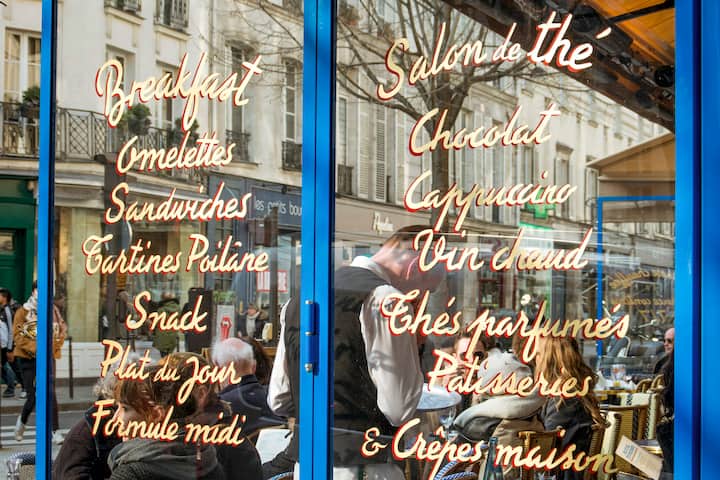 Breakfast
Omelettes
Sandwiches
Tartines Poilâne
Snack
Plat du Jour
Formule midi
Salon de thé
Chocolat
Cappuccino
Vin chaud
Thés parfumés
Patisseries
& Crêpes maison